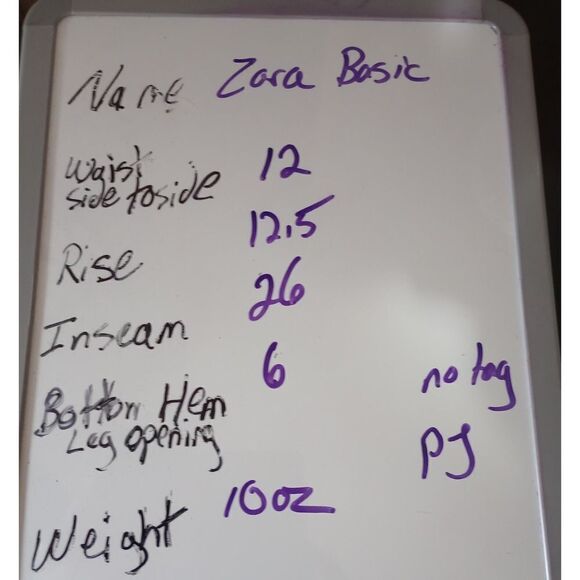 Name Zara Basic
Waist
side to side 12
Rise 12.5
Inseam 26
Bottom Hem 6 no tag
Leg opening PJ
Weight 10oz